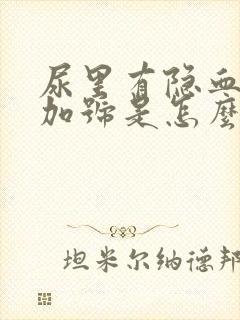 尿里有隐血
加號是怎麼
坦米尔纳德邦